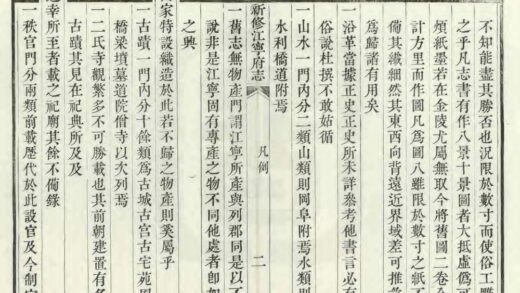 不知能盡其勝否也況限於數寸而使俗工雕
之乎凡志書有作八景十景圖者大抵虛爲可
煩紙墨若在金陵尤屬無取今將舊圖二卷
計方里而作圖凡爲圖八雖限於數寸之紙不
備其纖細然其東西向背遠近界域差可推
爲歸諸有用矣
一沿革當據正史正史所未詳參考他書言必
俗說杜撰不敢姑循
一山水一門內分二類山類則岡阜附焉水類則
水利橋道附焉
新修江寧府志
凡例
二
一舊志無物產門謂江寧所產與列郡同是以不
說非是江寧固有專產之物不同他處者卽如
之興
家特設織造於此若不歸之物產則奚屬乎
一古蹟一門內分十餘類爲古城古宮古宅苑
橋梁墳墓道院僧寺以次列焉
一二氏寺觀繁多不可勝載也其前朝建置有
古蹟其見在祀典所及及
幸所至者載之祠廟其餘不備錄
一秩官門分兩類前載歷代於此設官及今制